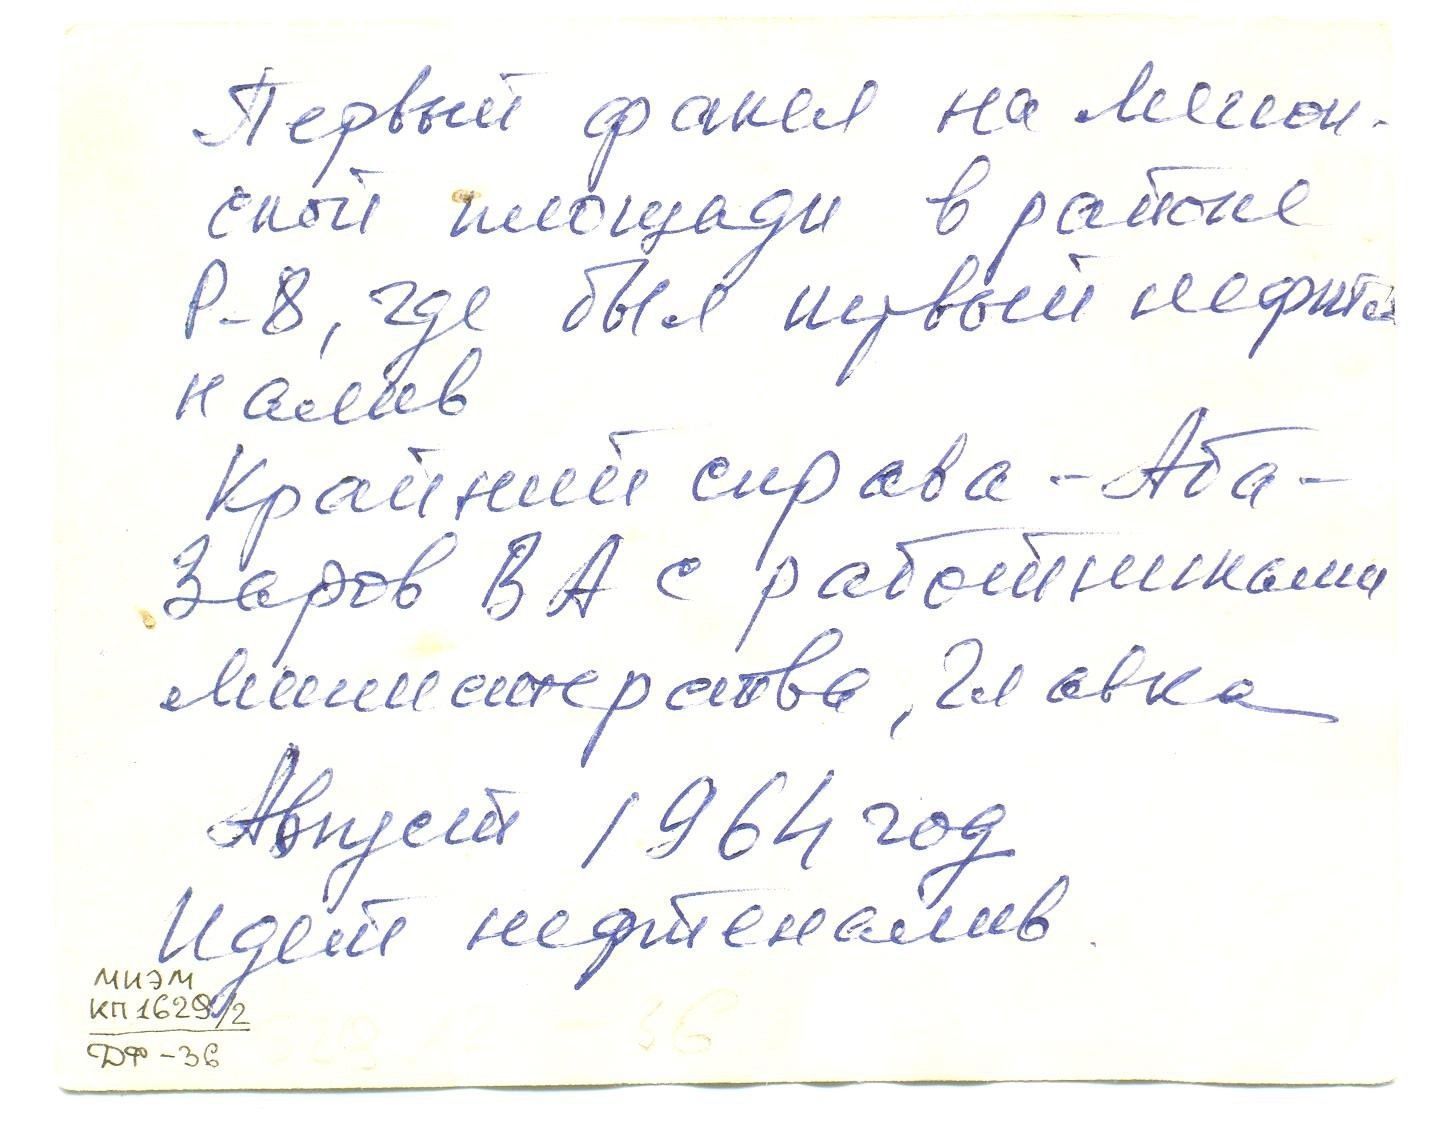 Первый факел на Мегион-
ской площади в районе
Р-8, где был первый нефте
налив
Крайний справа - Аба-
заров ВА с работниками
Министерства, Главка
Август 1964 год
Идет нефтеналив.
МИЭМ
КП1629/2
ДФ-36